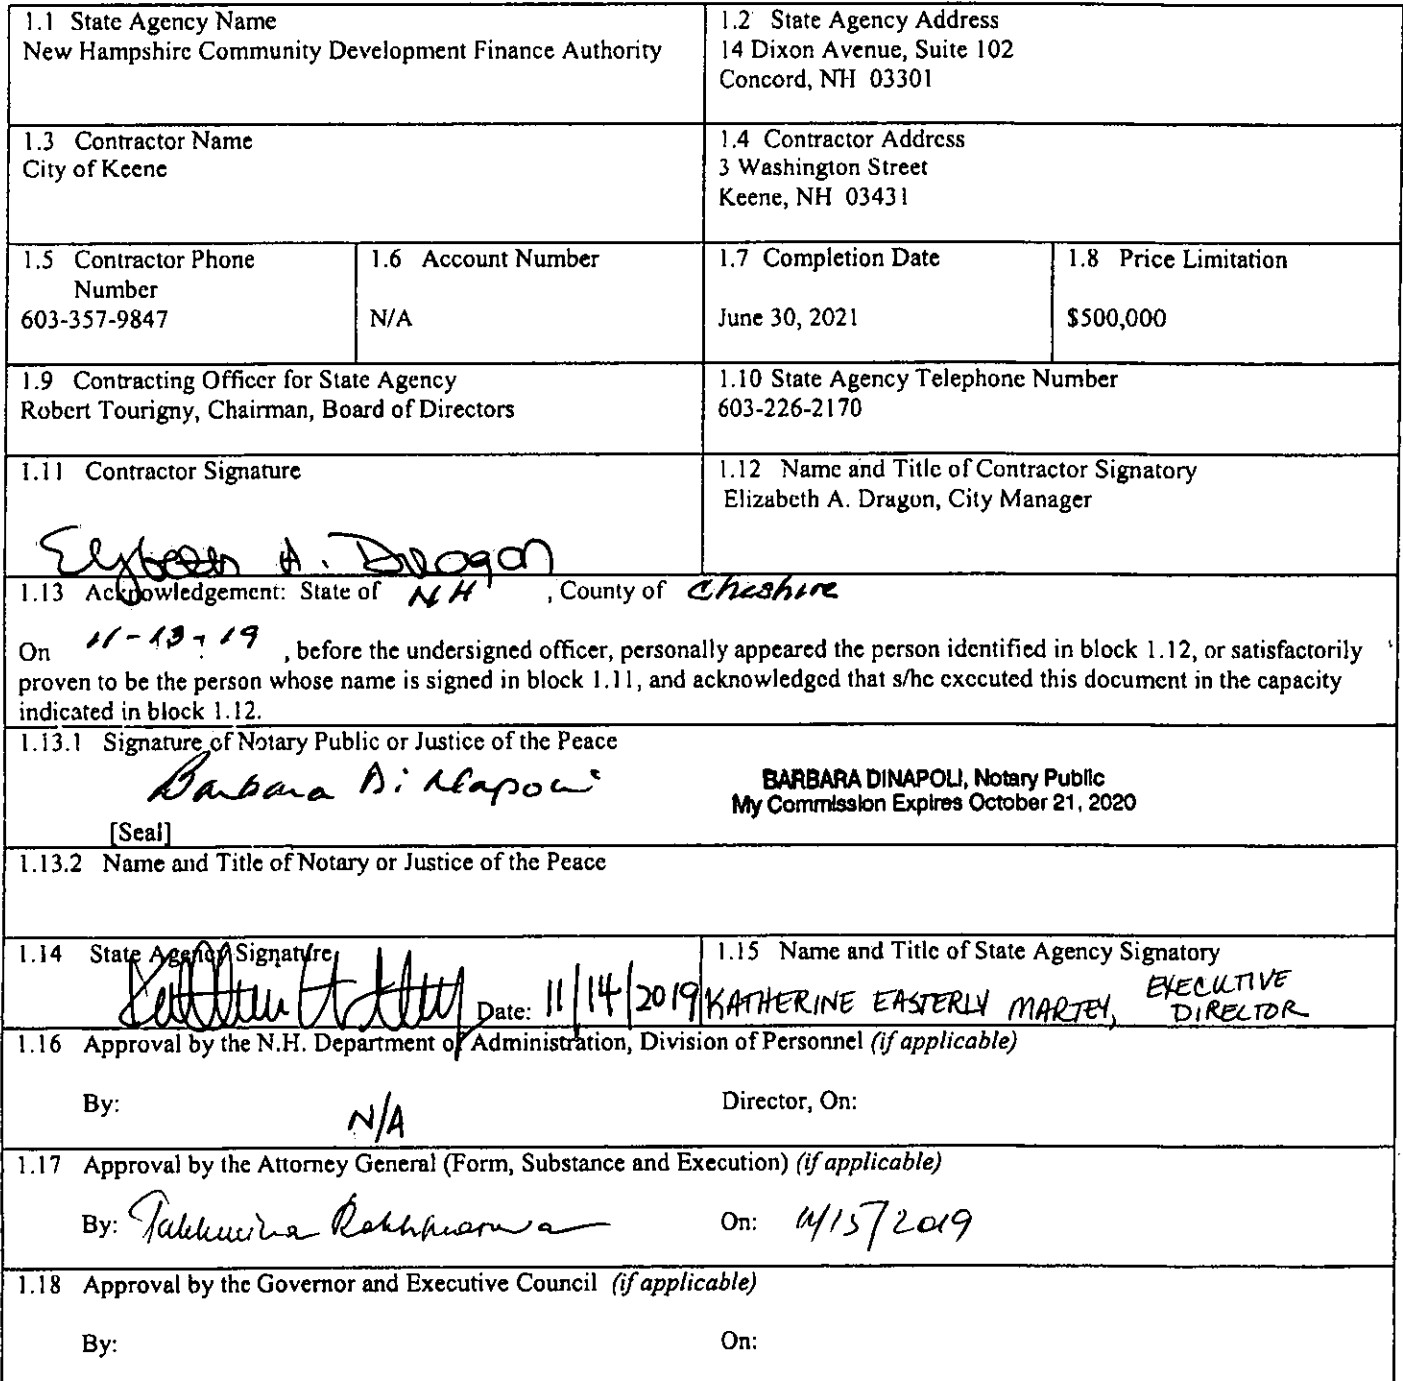 1.1 State Agency Name
New Hampshire Community Development Finance Authority
1.2 State Agency Address
14 Dixon Avenue, Suite 102
Concord, NH 03301
1.3 Contractor Name
City of Keene
1.4 Contractor Address
3 Washington Street
Keene, NH 03431
1.5 Contractor Phone
Number
603-357-9847
1.6 Account Number
N/A
1.7 Completion Date
June 30, 2021
1.8 Price Limitation
$500,000
1.9 Contracting Officer for State Agency
Robert Tourigny, Chairman, Board of Directors
1.10 State Agency Telephone Number
603-226-2170
1.11 Contractor Signature
A. Dragon
1.12 Name and Title of Contractor Signatory
Elizabeth A. Dragon, City Manager
1.13 Acknowledgement: State of NH , County of Cheshire
On 11-13-19 , before the undersigned officer, personally appeared the person identified in block 1.12, or satisfactorily
proven to be the person whose name is signed in block 1.11, and acknowledged that s/he executed this document in the capacity
indicated in block 1.12.
1.13.1 Signature of Notary Public or Justice of the Peace
Barbara DiNapoli
BARBARA DINAPOLI, Notary Public
My Commission Expires October 21, 2020
[Seal]
1.13.2 Name and Title of Notary or Justice of the Peace
1.14 State Agency Signature
Date: 11/14/2019
1.15 Name and Title of State Agency Signatory
KATHERINE EASTERLY MARTEY, EXECUTIVE
DIRECTOR
1.16 Approval by the N.H. Department of Administration, Division of Personnel (if applicable)
By: N/A Director, On:
1.17 Approval by the Attorney General (Form, Substance and Execution) (if applicable)
By: On: 11/15/2019
1.18 Approval by the Governor and Executive Council (if applicable)
By: On: